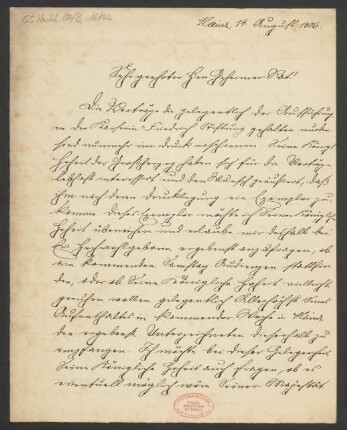 Mainz, 14. August 1906.
Sehr geehrter Herr Geheimer Rat!
Die Vorträge die gelegentlich der Aufführungen
in der Kaiserin Friedrich Stiftung gehalten wurden
sind nunmehr im Druck erschienen. Seine Königl.
Hoheit der Großherzog haben sich für die Vorträge
lebhaft interessiert und den Wunsch geäußert, daß
Ihm nach deren Drucklegung ein Exemplar zu
komme. Dieses Exemplar möchte ich Seiner Königlichen
Hoheit überreichen und erlaube mir deshalb bei
Ew. Hochwohlgeboren ergebenst anzufragen, ob
am kommenden Samstag Audienzen stattfin-
den, oder ob Seine Königliche Hoheit vielleicht
geruhen wollen gelegentlich Allerhöchst Seines
Aufenthaltes in kommender Woche in Mainz
den ergebenst Unterzeichneten dieserhalb zu
empfangen. Ich möchte bei dieser Gelegenheit
Seine Königliche Hoheit auch fragen, ob es
eventuell möglich wäre Seiner Majestät